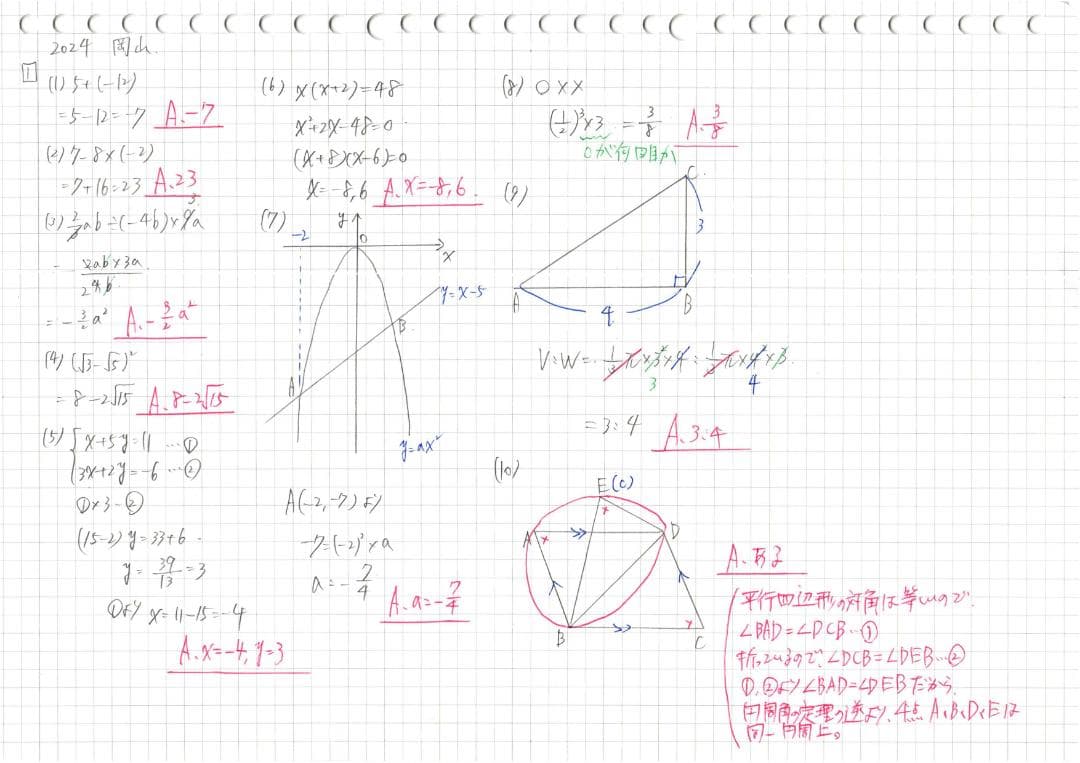 2024 岡山.
1
(1) 5+(-12)
=5-12=-7 A.-7
(2) 7-8×(-2)
=7+16=23 A.23
(3) 2/3ab÷(-4b)×9a
3
- 2ab×3a
24b
=-3/2a² A.-3/2a²
(4) (√3-√5)²
=8-2√15 A.8-2√15
(5) { x+5y=11 …①
3x+2y=-6 …②
①×3-②
(15-2)y=33+6
y=39/13=3
①より x=11-15=-4
A.x=-4, y=3
(6) x(x+2)=48
x²+2x-48=0
(x+8)(x-6)=0
x=-8,6 A.x=-8,6.
(7)
y
-2
O
x
y=x-5
B
A
y=ax²
A(-2,-7)より
-7=(-2)²×a
a=-7/4
A.a=-7/4
(8) ○××
(1/2)³×3 =3/8 A.3/8
○が何回目か
(9)
C
3
A
B
4
V:W= 1/3π×3²×4:1/3π×4²×3
3
4
=3:4 A.3:4
(10)
E(C)
A
D
B
C
A.ある
平行四辺形の対角は等しいので.
∠BAD=∠DCB…①
折っているので、∠DCB=∠DEB…②
①,②より∠BAD=∠DEBだから.
円周角の定理の逆より、4点 A、B、D、Eは
同一円周上。